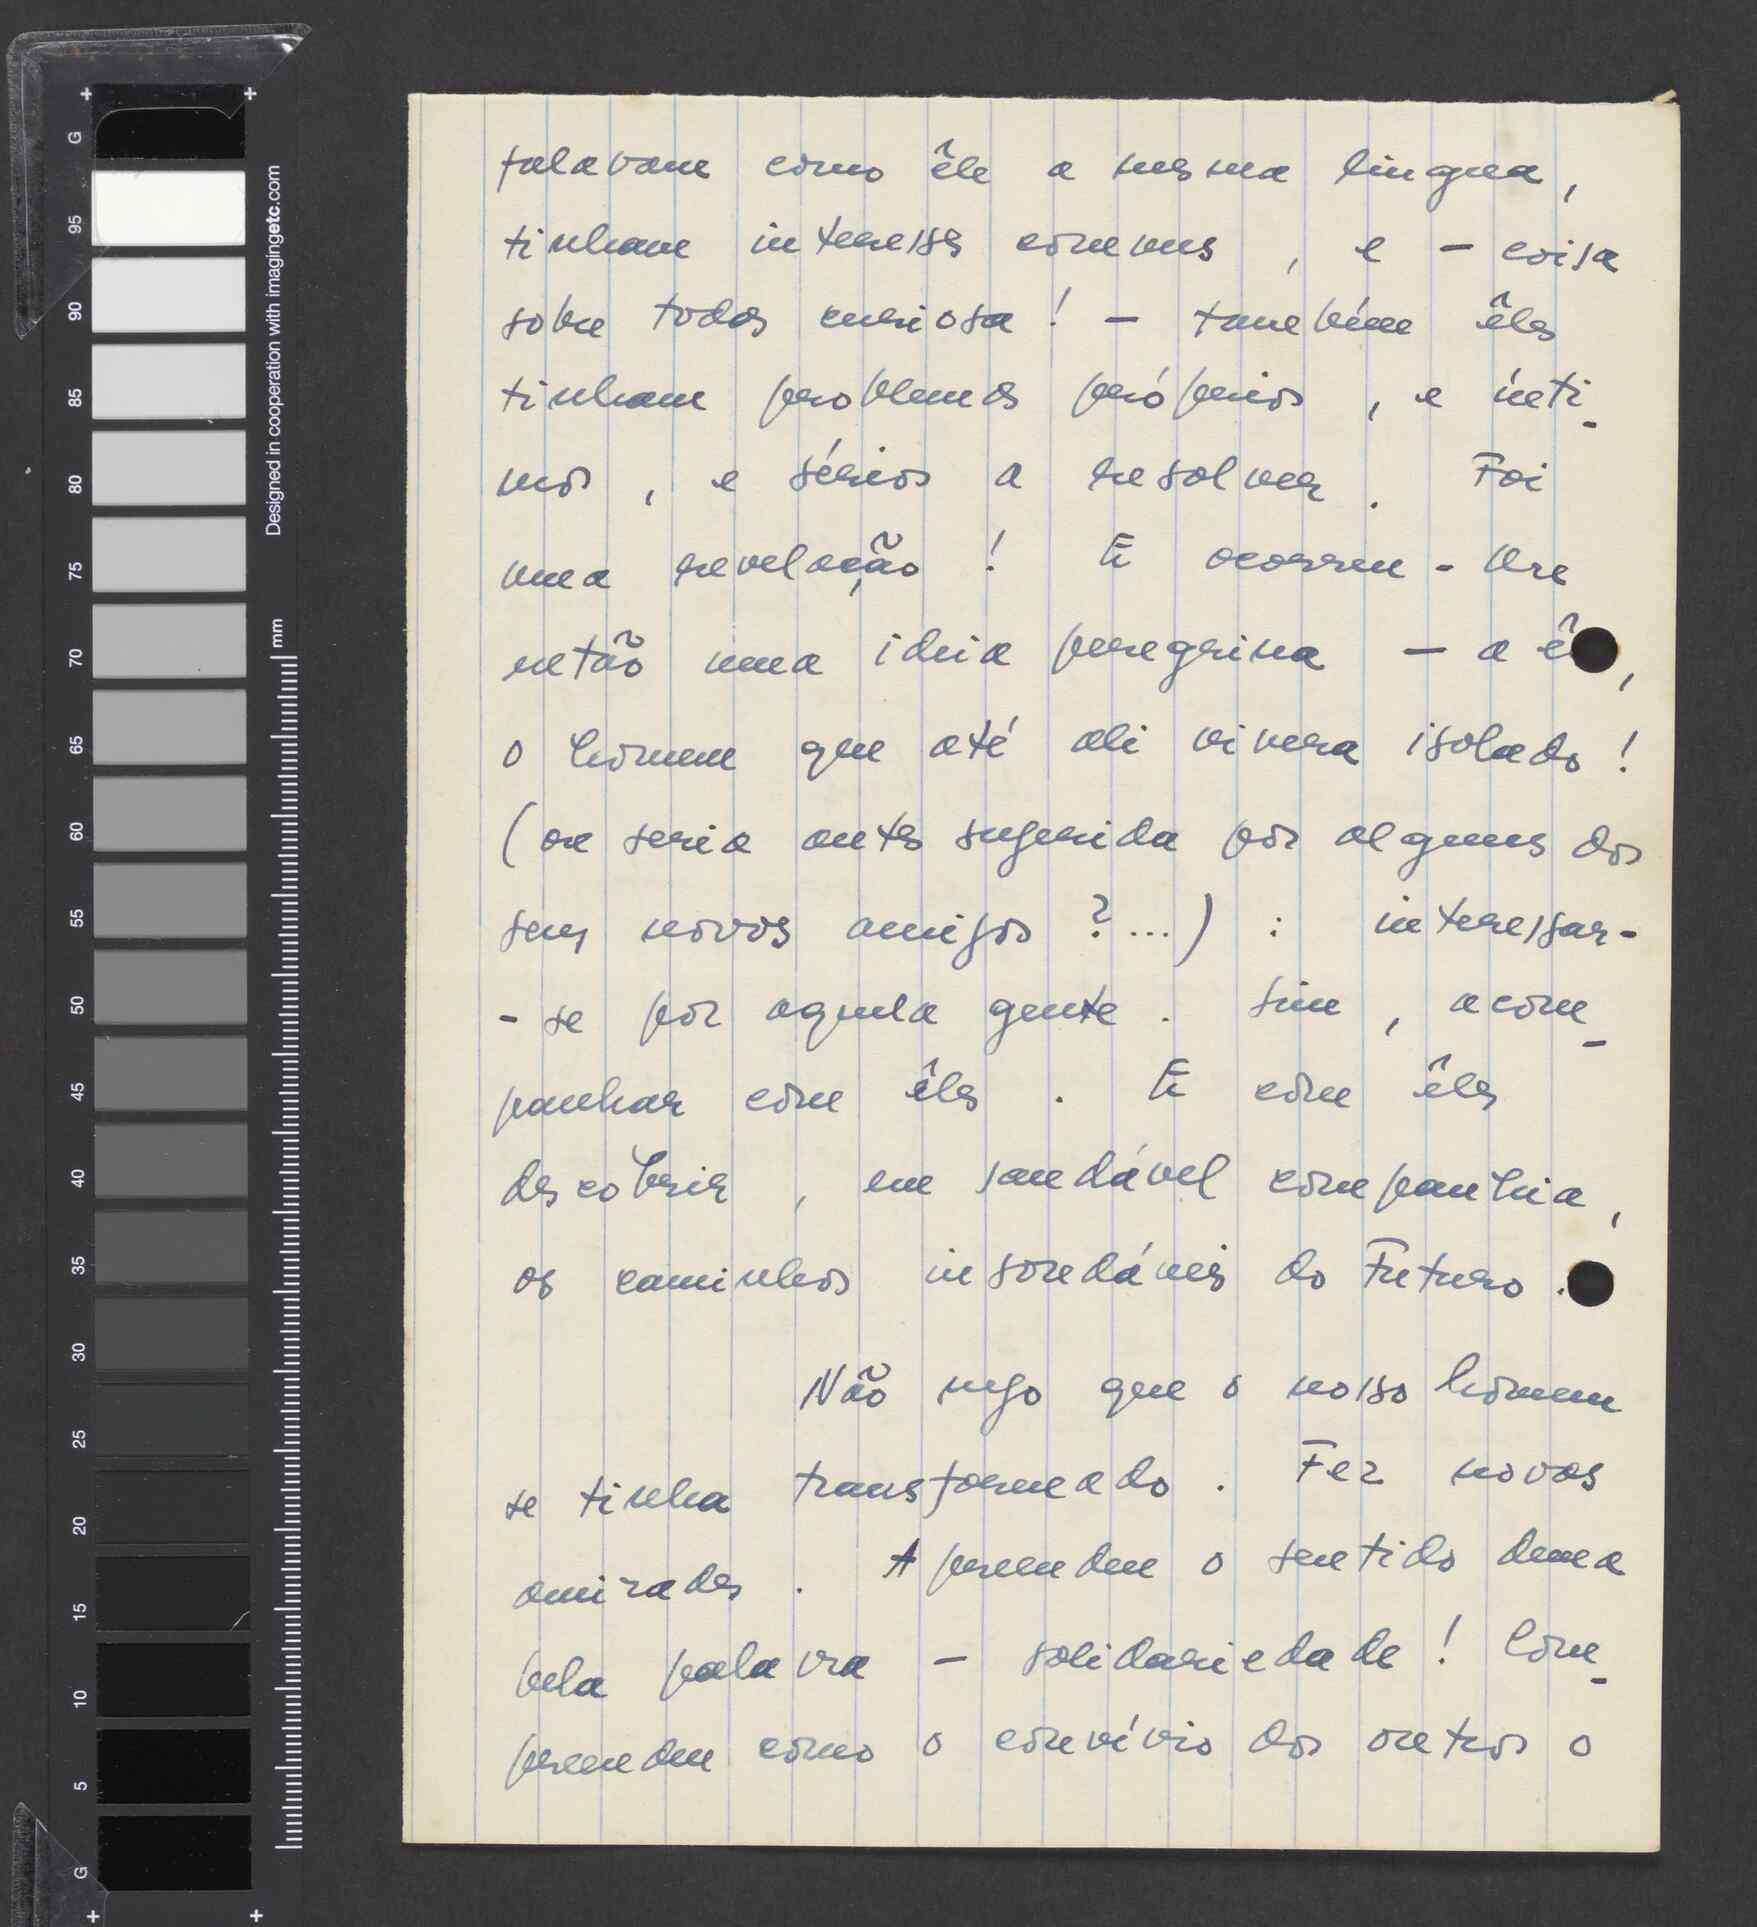 falavam como êle a mesma lingua,
tinham interesses comuns, e - coisa
sobre todas curiosa! - também êles
tinham problemas próprios, e ínti-
mos, e sérios a resolver. Foi
uma revelação! E ocorreu-lhe
então uma ideia peregrina - a ê ,
o homem que até ali vivera isolado!
(ou seria antes sugerida por alguns dos
seus novos amigos?...): interessar-
-se por aquela gente. Sim, acom-
panhar com êles. E com êles
descobrir, em saudável companhia,
os caminhos insondáveis do Futuro.
Não nego que o nosso homem
se tinha transformado. Fez novas
amizades. Apreendeu o sentido duma
bela palavra - solidariedade! Com-
preendeu como o convívio dos outros o
G
95
90
85
80
75
70
65
60
55
50
45
40
35
30
25
20
15
10
5
G
Designed in cooperation with imagingetc.com
mm